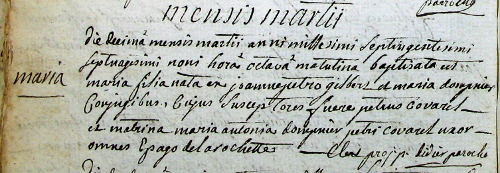 paroch
mensis martii
die decimâ mensis martii anni millesimi septingentesimi
septuagesimi noni horâ octavâ matutina baptisata est
maria
maria filia nata ex joanne petro gilbert et maria dompnier
conjugibus, cujus susceptores fuere petrus covaret
et matrina maria antonia dompnier petri covaret uxor
omnes è pago de la rochette didier paroch